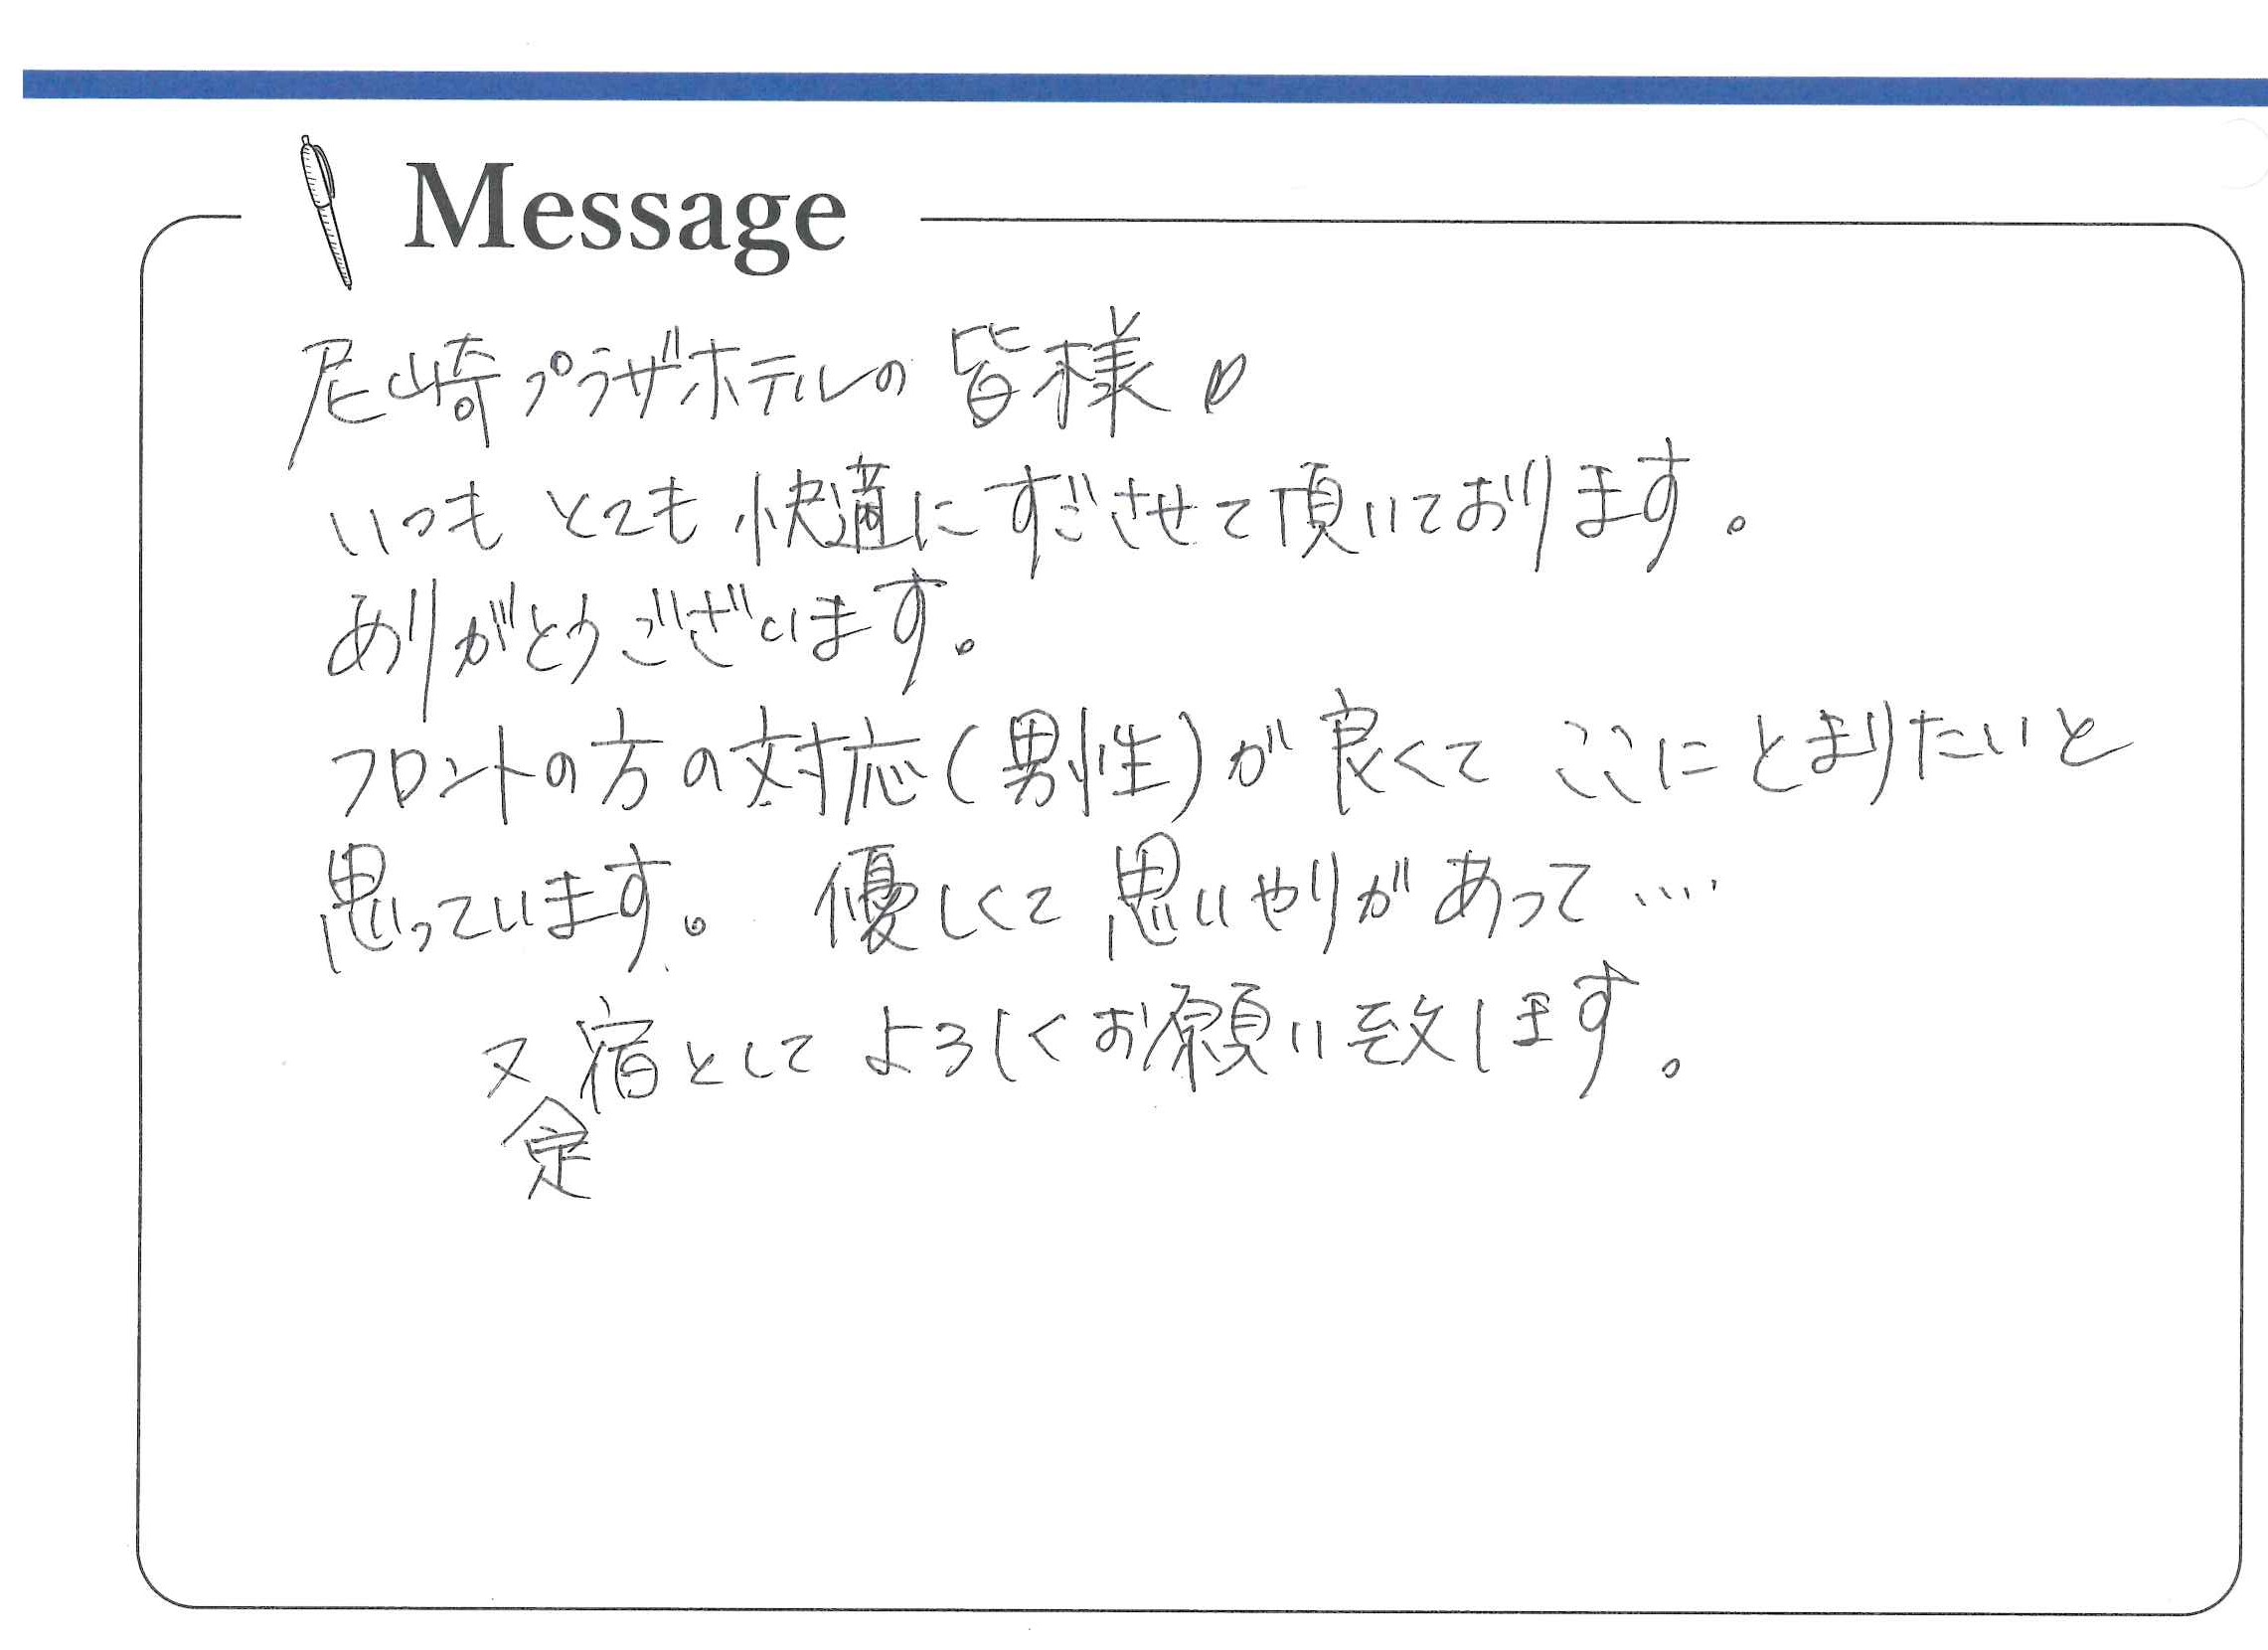 Message
尼崎プラザホテルの皆様
いつもとても快適にすごさせて頂いております。
ありがとうございます。
フロントの方の対応(男性)が良くてここにとまりたいと
思っています。優しくて思いやりがあって….
又定宿としてよろしくお願い致します。